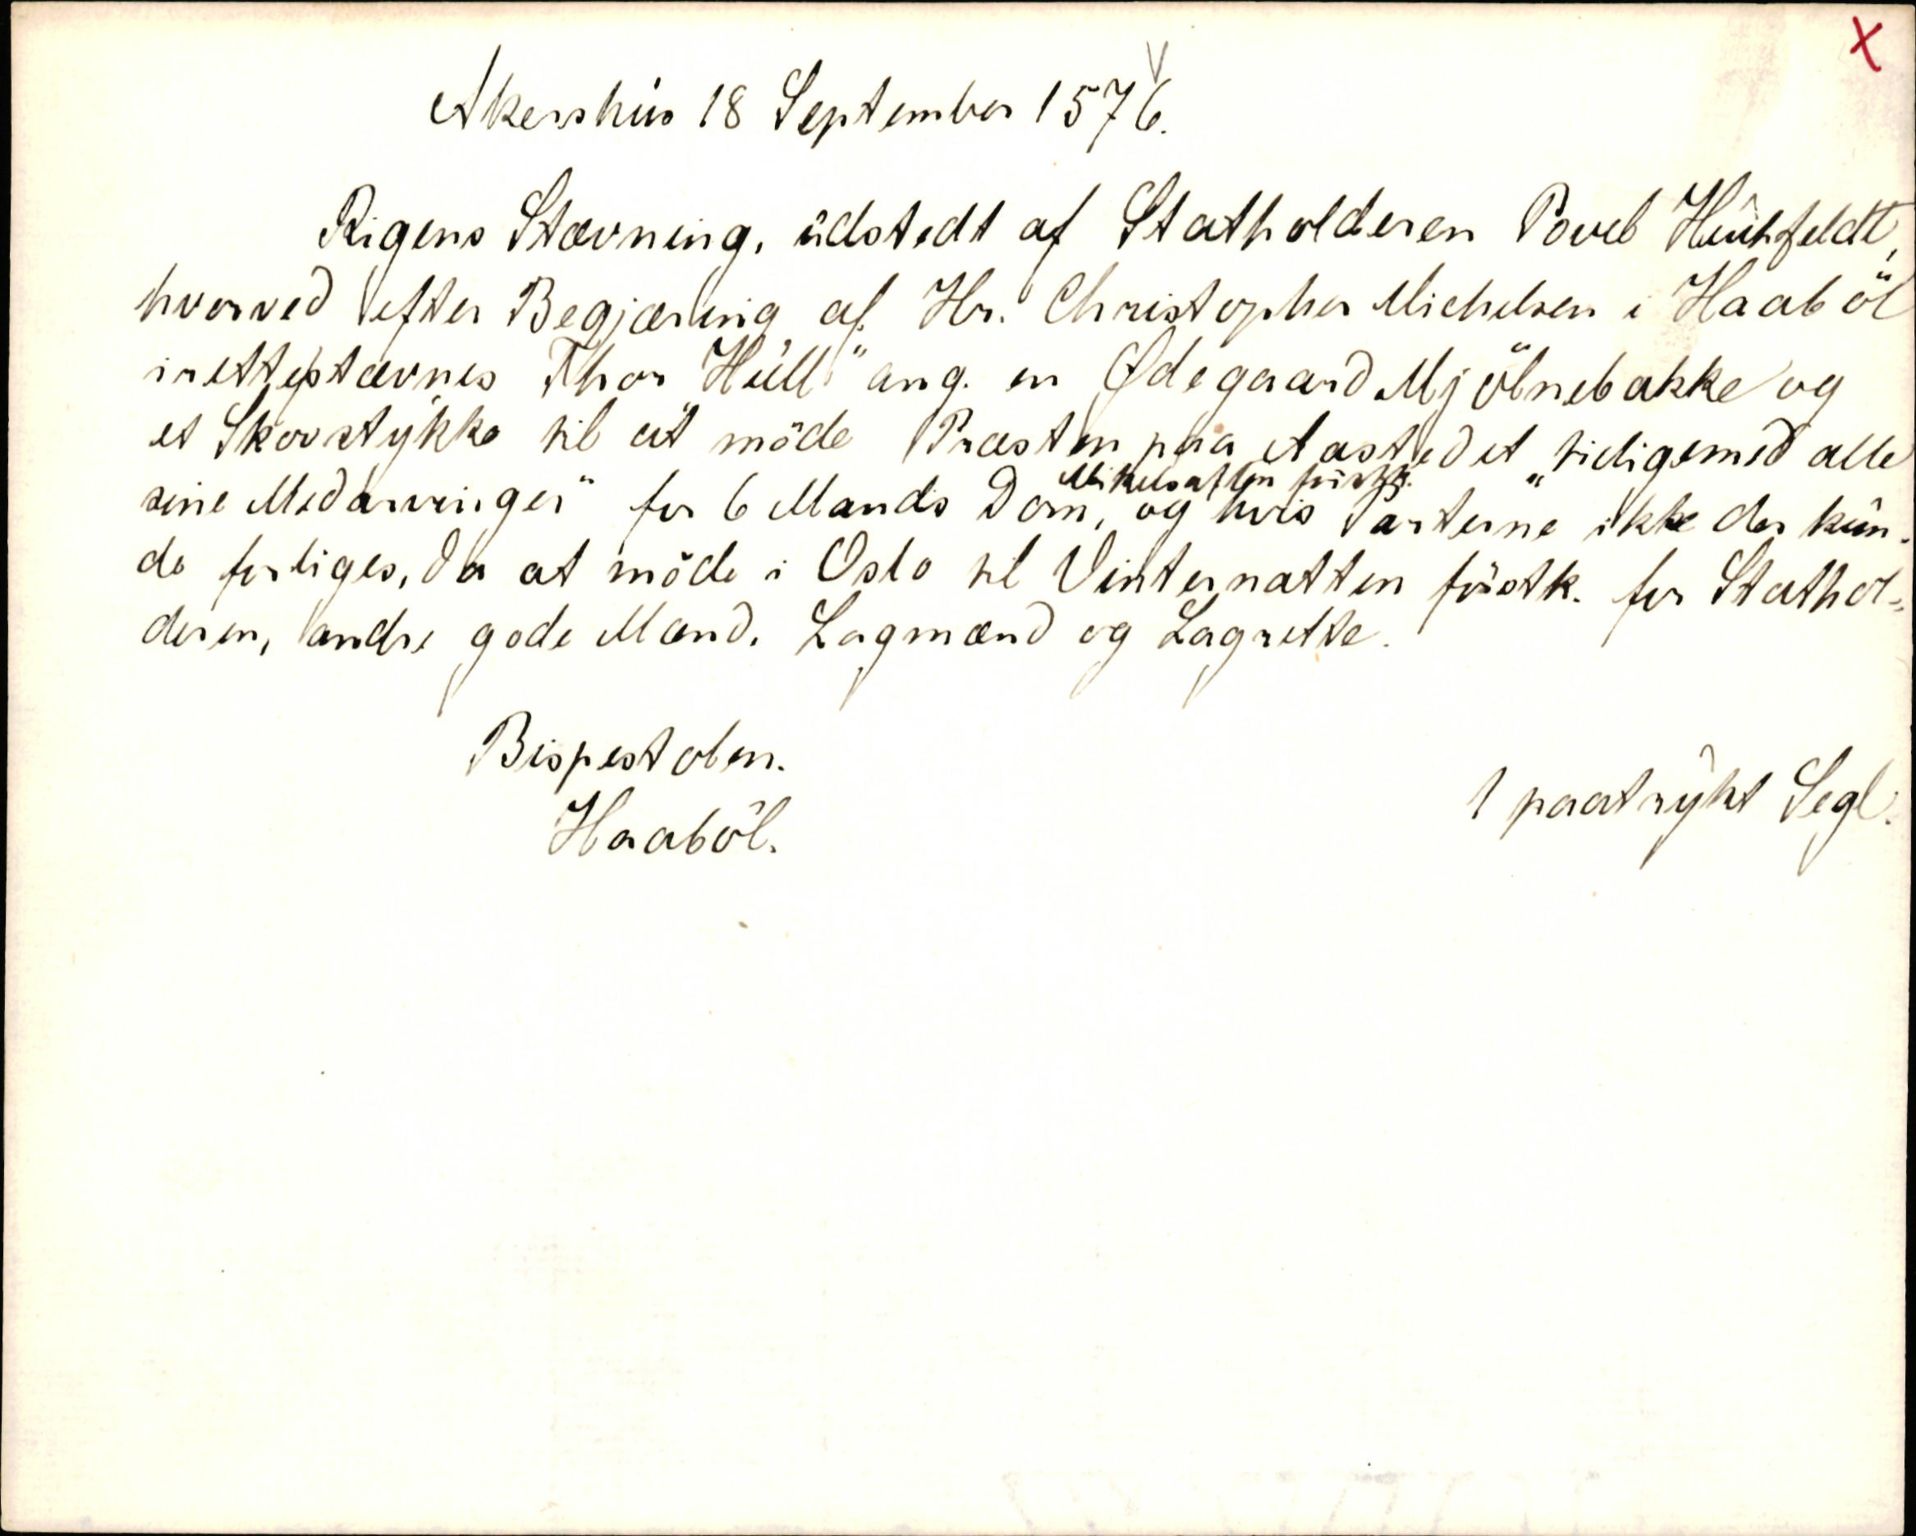 X
Akershus 18 September 1576.
Rigens Stævning, udstedt af Statholderen Povel Huitfeldt,
hvorved efter Begjæring af Hr. Christopher Michelsen i Haaböl
irettestævnes Thor Hüll" ang. en Ødegaard Mjölnebakke og
et Skovstykke til at möde Præsten paa Aastedet "tilligemed alle
Mikelsaften
sine Medarvinger" for 6 Mands Dom, og hvis Parterne ikke der kun-
de forliges, da at möde i Oslo til Vinternatten förstk. for Stathol-
deren, andre gode Mænd, Lagmænd og Lagrette.
Bispestolen.
Haaböl.
1 paatrykt Segl.